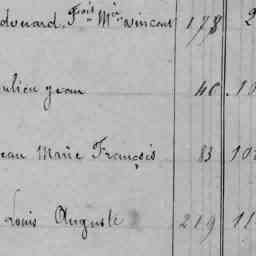 douard. Fois Mie vincent 178 2
ulieu jean 40 10
eau Marie François 83 10
Louis Auguste 219 11